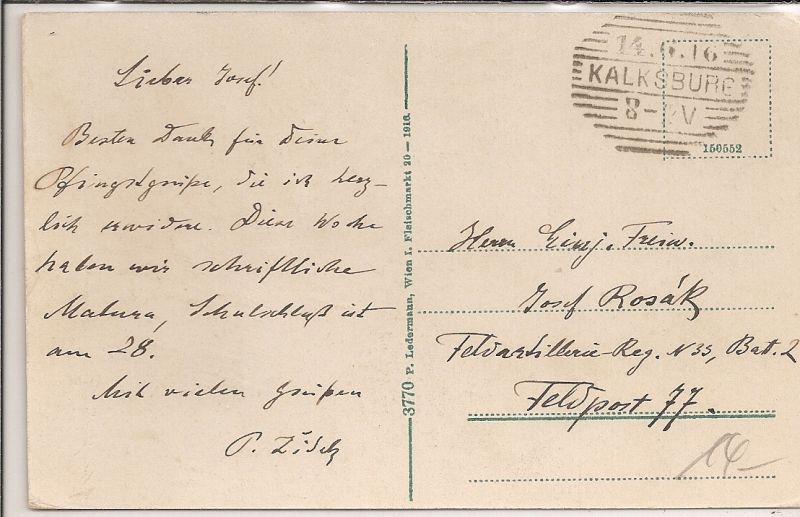 Lieber Josef!
Besten Dank für Deine
Pfingstgrüße, die ich herz-
lich erwidere. Diese Woche
haben wir schriftliche
Matura, Schulschluß ist
am 28.
Mit vielen Grüßen
P.
3770 P. Ledermann, Wien I. Fleischmarkt 20 — 1916.
14. 16
KALKSBURG
8- V
150552
Herrn Einj. Freiw.
Josef Rosák
Feldartillerie-Reg. N 33, Batt. 2
Feldpost 77.